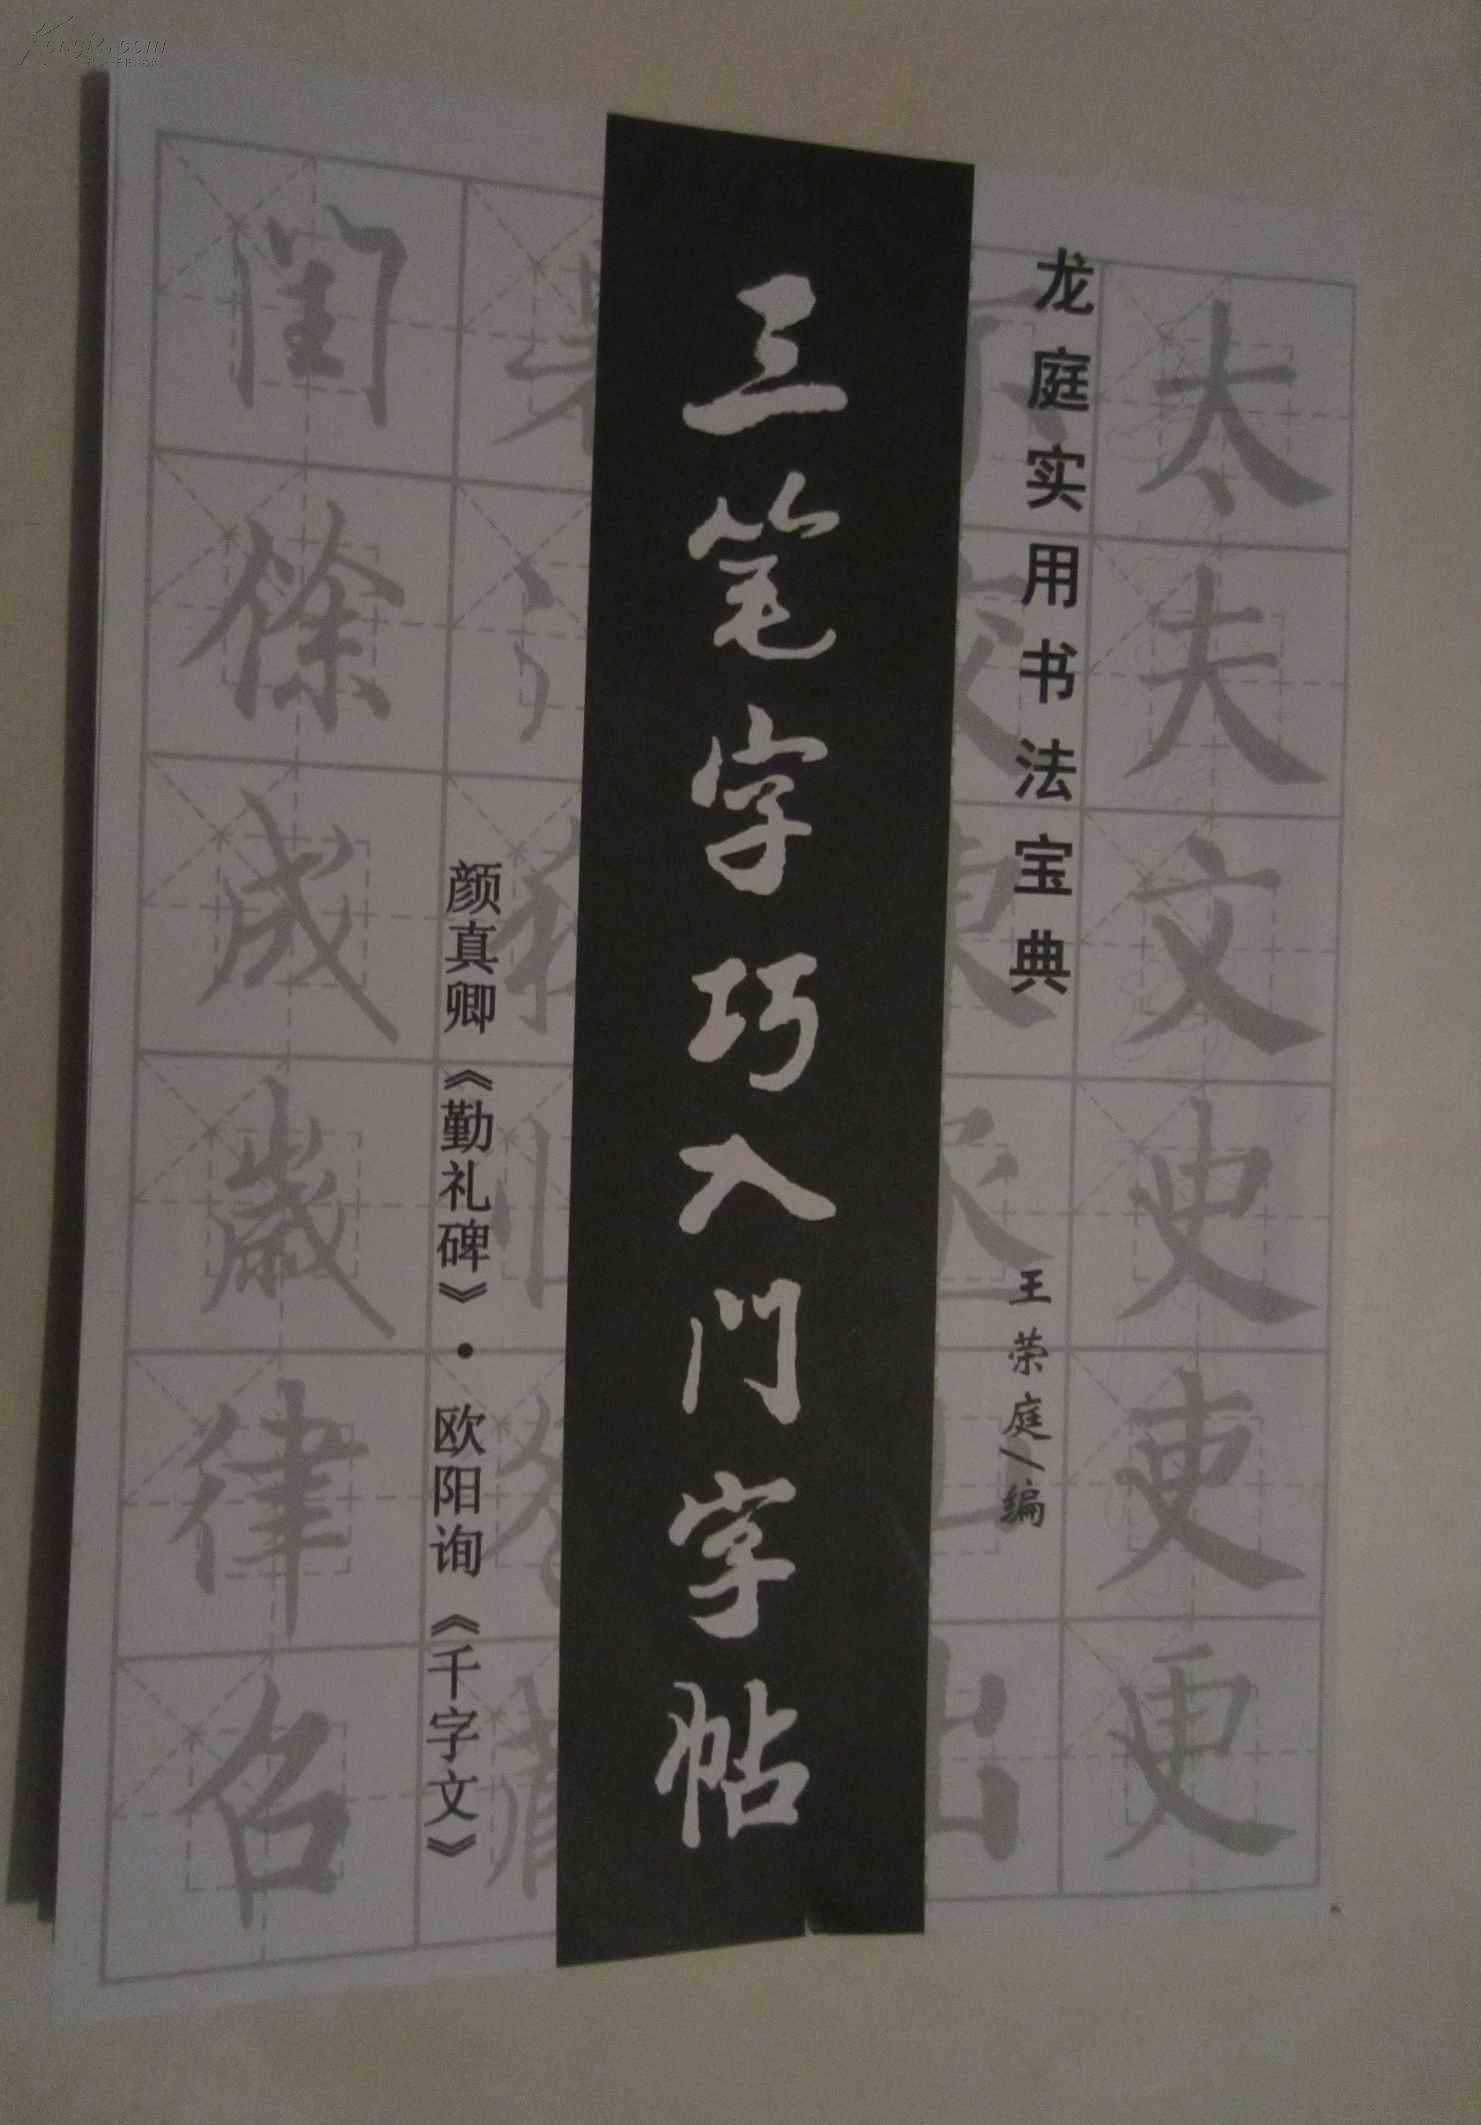 龙庭实用书法宝典
王荣庭/编
三笔字巧入门字帖
颜真卿《勤礼碑》·欧阳询《千字文》
太夫文史吏更
闰馀成岁律召